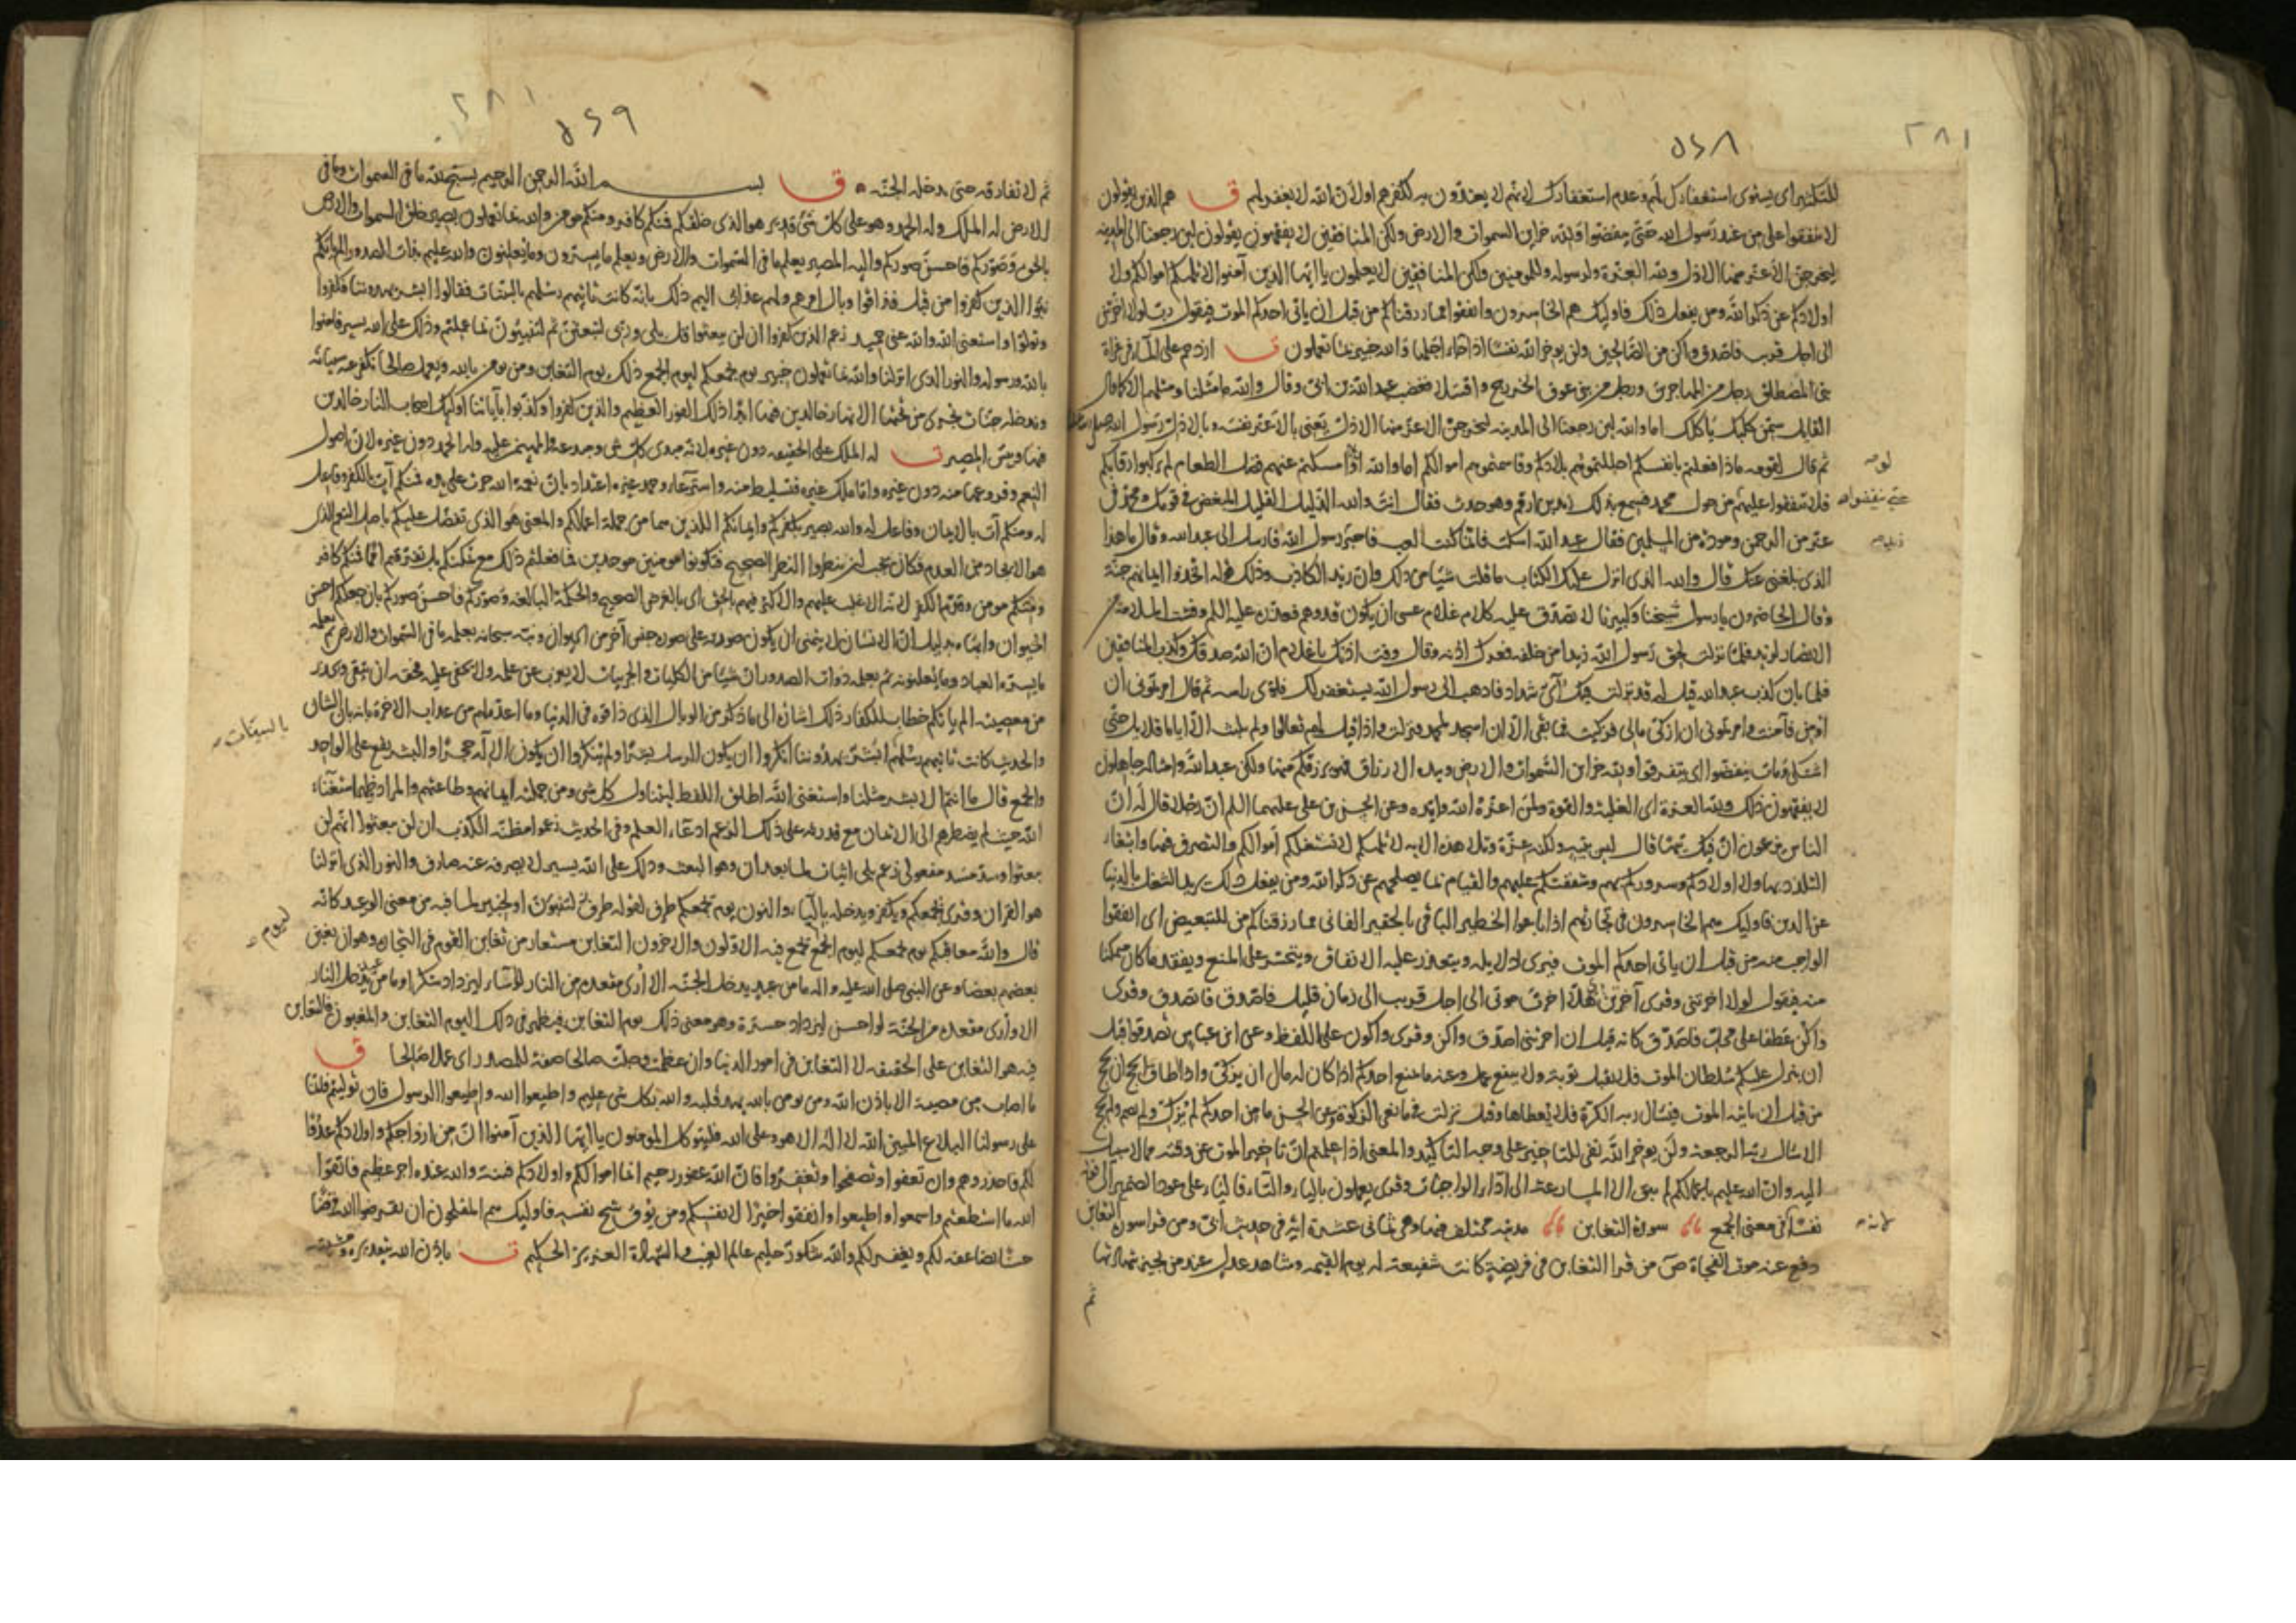 ٥٢٨
٢٨١
للتكثير اي يستوي استغفارك لهم وعدم استغفارك لانهم لا يعتدون به لكفرهم اولان الله لا يغفر لهم ق هم الذين يقولون
لا تنفقوا على من عند رسول الله حتى ينفضوا ولله خزاين السموات والارض ولكن المنافقين لا يفقهون يقولون لين رجعنا الى المدينه
ليخرجن الاعز منها الاذل ولله العزة ولرسوله وللمومنين ولكن المنافقين لا يعلمون يا ايها الذين آمنوا لا تلهكم اموالكم ولا
اولادكم عن ذكر الله ومن يفعل ذلك فاوليك هم الخاسرون وانفقوا مما رزقناكم من قبل ان ياتي احدكم الموت فيقول رب لولا اخرتني
الى اجل قريب فاصدق واكن من الصالحين ولن يوخر الله نفسا اذا جاء اجلها والله خبير بما تعملون ت ازدحم على الماء في غزاة
بني المصطلق رجل من المهاجرين ورجل من بني عوف الخزرج واقتتلا فغضب عبد الله بن ابي وقال والله ما مثلنا ومثلهم الا كما قال
القايل سمن كلبك ياكلك اما والله لين رجعنا الى المدينه ليخرجن الاعز منها الاذل يعني بالاعز نفسه وبالاذل رسول الله
ثم قال لقومه ماذا فعلتم بانفسكم احللتموهم بلادكم وقاسمتموهم اموالكم اما والله لو امسكتم عنهم فضل الطعام لم يركبوا رقابكم
فلا تنفقوا عليهم من حول محمد فسمع بذلك زيد بن ارقم وهو حدث فقال انت والله الذليل القليل المبغض في قومك ومحمد في
عز من الرحمن ومودة من المسلمين فقال عبد الله اسكت فانما كنت العب فاخبر رسول الله فارسل الى عبد الله وقال ما هذا
الذي بلغني عنك قال والله الذي انزل عليك الكتاب ما قلت شيئا من ذلك وان زيدا لكاذب وذلك قوله اتخذوا ايمانهم جنة
وقال الحاضرون يا رسول شيخنا وكبيرنا لا تصدق عليه كلام غلام عسى ان يكون قد وهم فعذره عليه السلم وفشت الملامة من
الانصار لزيد فلما نزلت لحق رسول الله زيدا من خلفه فعرك اذنه وقال وفت اذنك يا غلام ان الله صدقك وكذب المنافقين
فلما بان كذب عبد الله قيل له قد نزلت فيك آي شداد فاذهب الى رسول الله يستغفر لك فلوى راسه ثم قال امرتموني ان
اومن فآمنت وامرتموني ان ازكي مالي فزكيت فما بقي الا ان اسجد لمحمد فنزلت واذا قيل لهم تعالوا ولم يلبث الا اياما قلايل حتى
اشتكى ومات ينفضوا اي يتفرقوا ولله خزاين السموات والارض وبيده الارزاق فهو يرزقكم منها ولكن عبد الله وامثاله جاهلون
لا يفقهون ذلك ولله العزة اي الغلبة والقوة ولمن اعزه الله وايده وعن الحسن بن علي عليهما السلم ان رجلا قال له ان
الناس يزعمون ان فيك تيها قال ليس بتيه ولكنه عزة وتلا هذه الايه لا تلهكم لا تشغلكم اموالكم والتصرف فيها وابتغاء
التلذذ بها ولا اولادكم وسروركم بهم وشفقتكم عليهم والقيام بما يصلحهم عن ذكر الله ومن يفعل ذلك يريد الشغل بالدنيا
عن الدين فاوليك هم الخاسرون في تجارتهم اذا باعوا الخطير الباقي بالحقير الفاني مما رزقناكم من للتبعيض اي انفقوا
الواجب منه من قبل ان ياتي احدكم الموت فيرى دلايله ويتعذر عليه الانفاق ويتحسر على المنع ويفقد ما كان متمكنا
منه فيقول لولا اخرتني وقرى آخرتن هلا اخرت موتي الى اجل قريب الى زمان قليل فاصدق فاتصدق وقرى
واكن عطفا على محل فاصدق كانه قيل ان اخرتني اصدق واكن وقرى واكون على اللفظ وعن ابن عباس تصدقوا قبل
ان ينزل عليكم سلطان الموت فلا تقبل توبة ولا ينفع عمل وعنه ما يمنع احدكم اذا كان له مال ان يزكي واذا اطاق الحج ان يحج
من قبل ان ياتيه الموت فيسال ربه الكرة فلا يعطاها وقيل نزلت في مانعي الزكوة وعن الحسن ما من احدكم لم يزك ولم يصم ولم يحج
الا سال ربه الرجعة ولن يوخر الله نفي للتاخير على وجه التاكيد والمعنى اذا علمتم ان تاخير الموت عن وقته مما لا سبيل
اليه وان الله عليم باعمالكم لم يبق الا المسارعة الى اداء الواجبات وقرى يعملون بالياء والتاء فالياء على عود الضمير الى قوله
نفسا لانه في معنى الجمع سورة التغابن مدنيه مختلف فيها وهي ثماني عشرة آية في حديث ابي ومن قرا سورة التغابن
دفع عنه موت الفجاة ص من قرا التغابن في فريضة كانت شفيعة له يوم القيمه وشاهد عدل عند من يجيز شهادتها
ثم
حتى ينفضوا
٥٢٩
٢٨١
ثم لا تفارقه حتى يدخله الجنة ق بسم الله الرحمن الرحيم يسبح لله ما في السموات وما في
الارض له الملك وله الحمد وهو على كل شئ قدير هو الذي خلقكم فمنكم كافر ومنكم مومن والله بما تعملون بصير خلق السموات والارض
بالحق وصوركم فاحسن صوركم واليه المصير يعلم ما في السموات والارض ويعلم ما يسترون وما يعلنون والله عليم بذات الصدور الم ياتكم
نبؤا الذين كفروا من قبل فذاقوا وبال امرهم ولهم عذاب اليم ذلك بانه كانت تاتيهم رسلهم بالبينات فقالوا ابشر يهدوننا فكفروا
وتولوا واستغنى الله والله غني حميد زعم الذين كفروا ان لن يبعثوا قل بلى وربي لتبعثن ثم لتنبئون بما عملتم وذلك على الله يسير فامنوا
بالله ورسوله والنور الذي انزلنا والله بما تعملون خبير يوم يجمعكم ليوم الجمع ذلك يوم التغابن ومن يومن بالله ويعمل صالحا نكفر عنه سيئاته
وندخله جنات تجري من تحتها الانهار خالدين فيها ابدا ذلك الفوز العظيم والذين كفروا وكذبوا بآياتنا اوليك اصحاب النار خالدين
فيها وبئس المصير ت له الملك على الحقيقه دون غيره لانه مبدي كل شئ ومبدعه والمهيمن عليه وله الحمد دون غيره لان اصول
النعم وفروعها منه دون غيره واما ملك غيره فتسليط منه واسترعاء وحمد غيره اعتداد بان نعمة الله جرت على يده فمنكم آت بالكفر وفاعل
له ومنكم آت بالايمان وفاعل له والله بصير بكفركم وايمانكم اللذين هما من جملة اعمالكم والمعنى هو الذي تفضل عليكم باصل النعم الذي
هو الايجاد من العدم فكان يجب ان تنظروا النظر الصحيح فتكونوا مومنين موحدين فما فعلتم ذلك مع تمكنكم بل تفرقتم امما فمنكم كافر
ومنكم مومن وقدم الكفر لانه الاغلب عليهم والاكثر فيهم بالحق اي بالغرض الصحيح والحكمة البالغة وصوركم فاحسن صوركم بان جعلكم احسن
الحيوان وابهاه بدليل ان الانسان لا يتمنى ان يكون صورته على صورة جنس آخر من الحيوان ونبه سبحانه بعلمه ما في السموات والارض ثم بعلمه
ما يسره العباد وما يعلنونه ثم بعلمه ذوات الصدور ان شيئا من الكليات والجزيات لا يعزب عن علمه ولا يخفى عليه فحقه ان يتقى ويحذر
من معصيته الم ياتكم خطاب للكفار ذلك اشارة الى ما ذكر من الوبال الذي ذاقوه في الدنيا وما اعد لهم من عذاب الاخرة بانه بان الشان
والحديث كانت تاتيهم رسلهم ابشر يهدوننا انكروا ان يكون الرسل بشرا ولم ينكروا ان يكون الاله حجرا والبشر يقع على الواحد
والجمع قال ما انتم الا بشر مثلنا واستغنى الله اطلق اللفظ ليتناول كل شئ ومن جملته ايمانهم وطاعتهم والمراد ظهر استغناء
الله حيث لم يضطرهم الى الايمان مع قدرته على ذلك الزعم ادعاء العلم وفي الحديث زعموا مطية الكذب ان لن يبعثوا انهم لن
يبعثوا وسد مسد مفعولي زعم بلى اثبات لما بعد ان وهو البعث وذلك على الله يسير لا يصرفه عنه صارف والنور الذي انزلنا
هو القران وقرى نجمعكم ويكفر ويدخله بالياء والنون يوم يجمعكم ظرف لقوله لتنبؤن او لخبير لما فيه من معنى الوعيد كانه
قال والله معاقبكم يوم يجمعكم ليوم الجمع يجمع فيه الاولون والاخرون التغابن مستعار من تغابن القوم في التجارة وهو ان يغبن
بعضهم بعضا وعن النبي صلى الله عليه واله ما من عبد يدخل الجنة الا اري مقعده من النار لو اساء ليزداد شكرا وما من عبد يدخل النار
الا واري مقعده من الجنة لو احسن ليزداد حسرة وهو معنى ذلك يوم التغابن فيظهر في ذلك اليوم التغابن والمغبون فالتغابن
فيه هو التغابن على الحقيقه لا التغابن في امور الدنيا وان عظمت وجلت صالحا صفة للمصدر اي عملا صالحا ق
ما اصاب من مصيبة الا باذن الله ومن يومن بالله يهد قلبه والله بكل شئ عليم واطيعوا الله واطيعوا الرسول فان توليتم فانما
على رسولنا البلاغ المبين الله لا اله الا هو وعلى الله فليتوكل المومنون يا ايها الذين آمنوا ان من ازواجكم واولادكم عدوا
لكم فاحذروهم وان تعفوا وتصفحوا وتغفروا فان الله غفور رحيم انما اموالكم واولادكم فتنة والله عنده اجر عظيم فاتقوا
الله ما استطعتم واسمعوا واطيعوا وانفقوا خيرا لانفسكم ومن يوق شح نفسه فاوليك هم المفلحون ان تقرضوا الله قرضا
حسنا يضاعفه لكم ويغفر لكم والله شكور حليم عالم الغيب والشهادة العزيز الحكيم ت باذن الله بتقديره ومشيته
بالبينات
ليوم